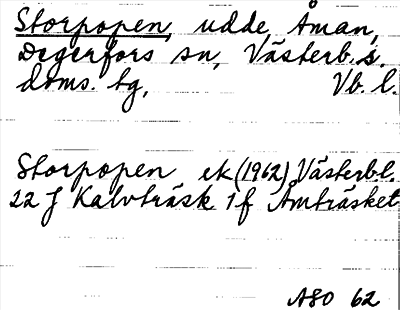 Storpopen, udde, Åman,
Degerfors sn, Västerb. s.
doms. tg, Vb. l.
Storpopen ek (1962) Västerbl.
22 J Kalvträsk 1 f Åmträsket
ASO 62